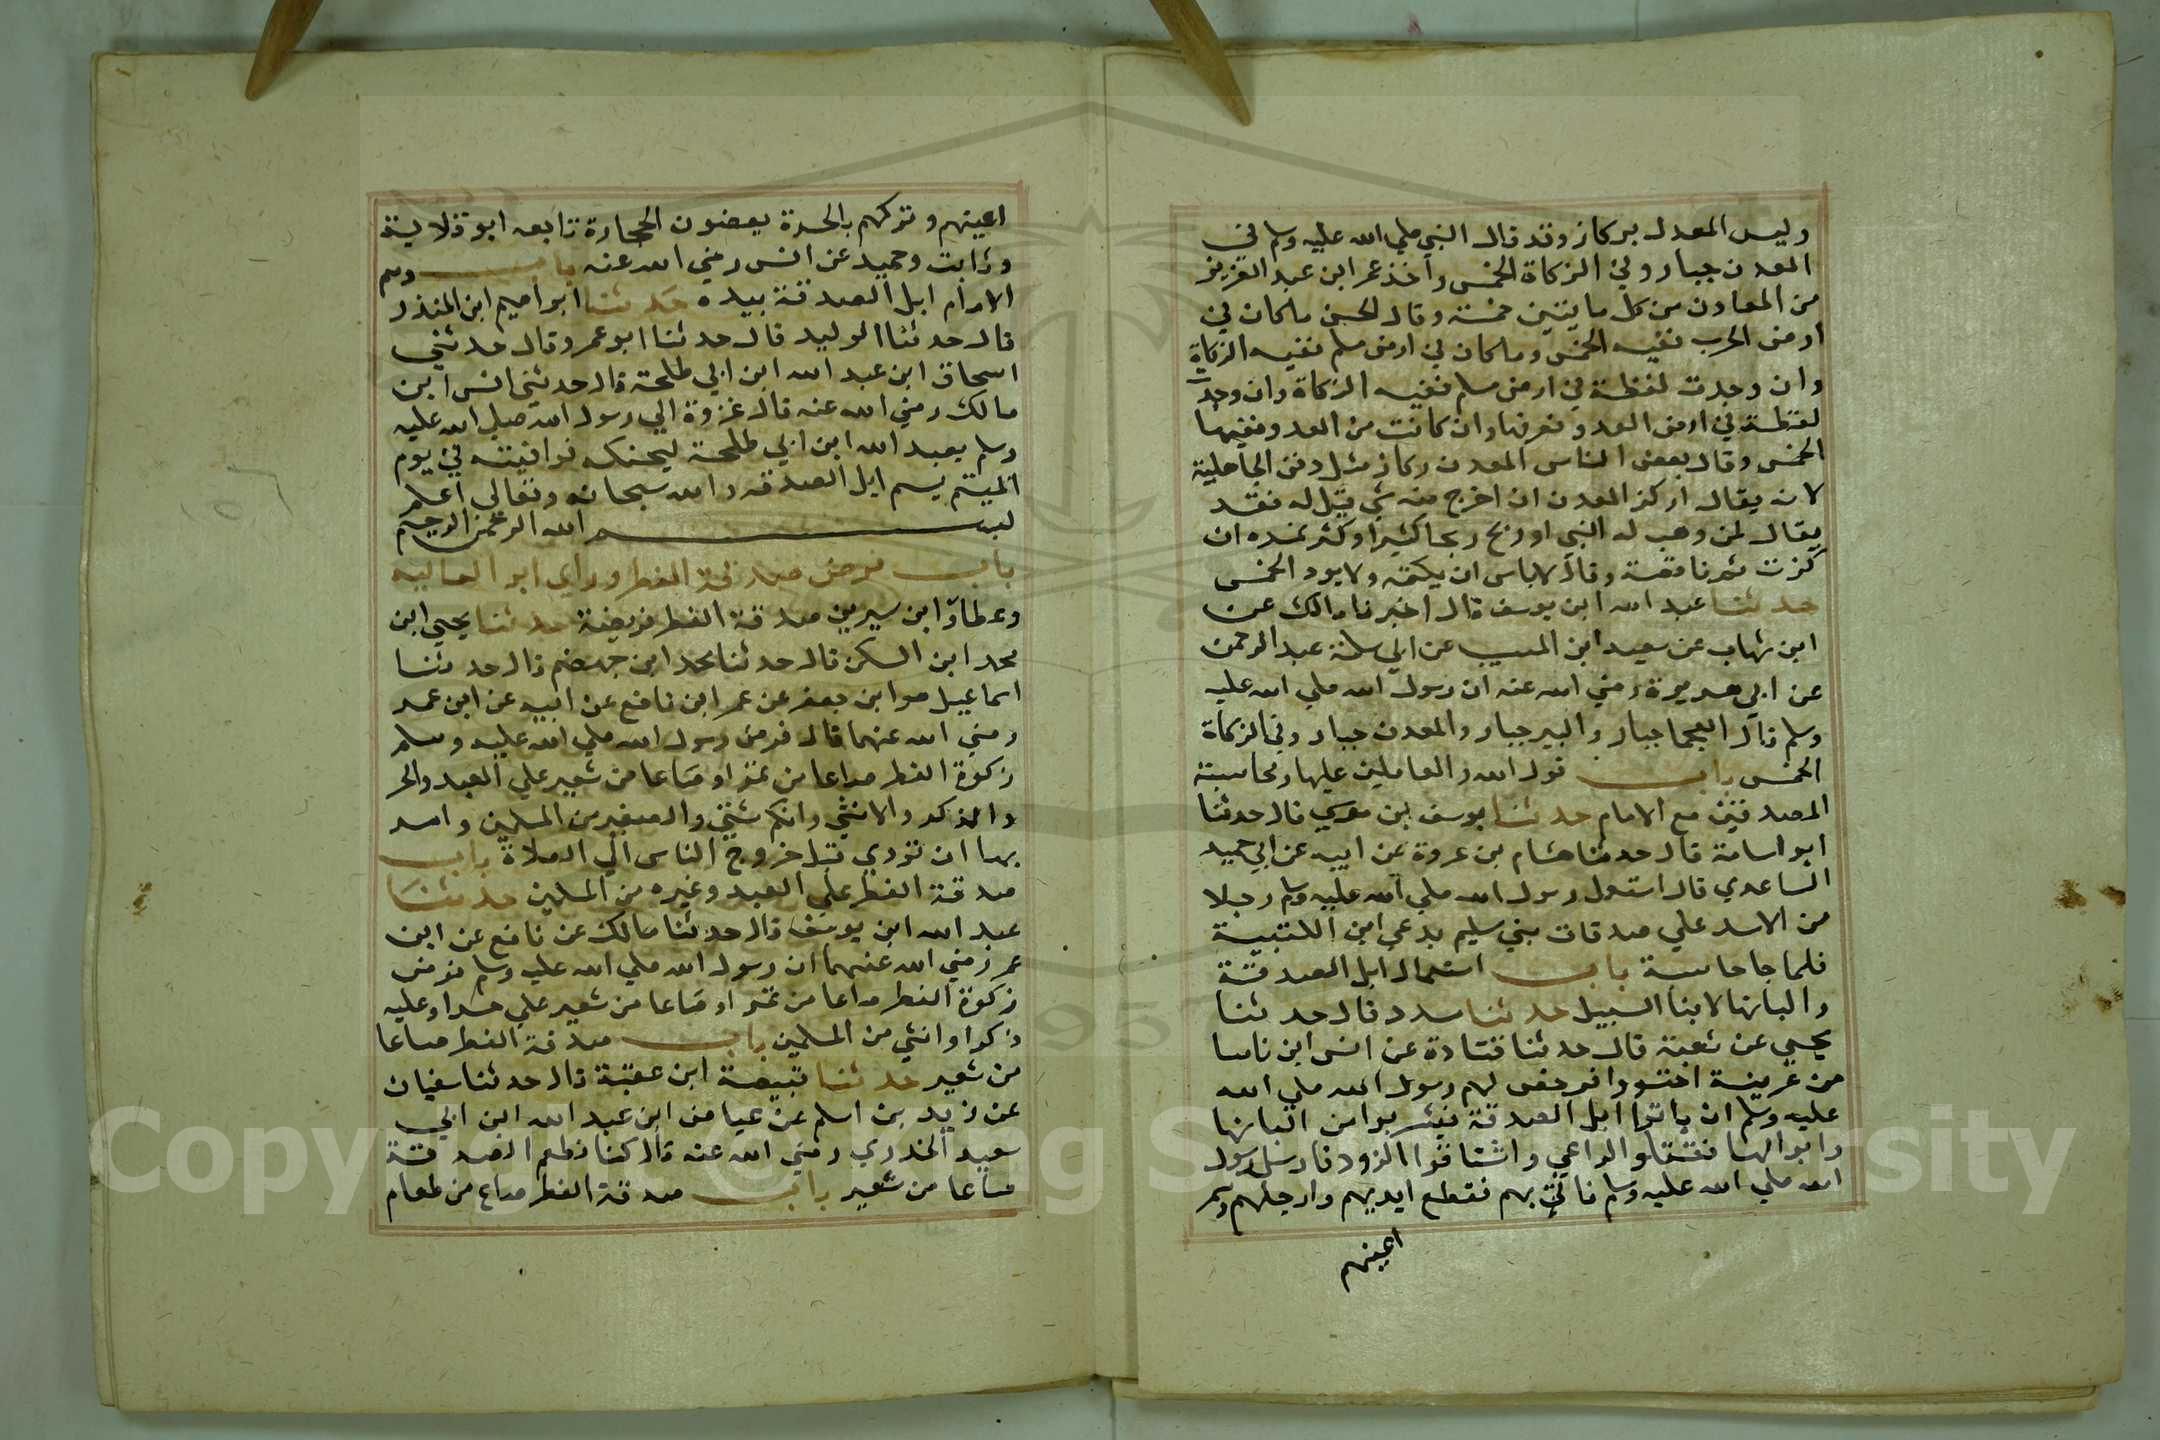 وليس المعدن بركاز وقد قال النبي صلي الله عليه وسلم في
المعدن جبار وفي الزكاة الخمس واخذ عمر ابن عبد العزيز
من المعادن من كل مايتين خمسة وقال الحسن ما كان في
ارض الحرب ففيه الخمس وما كان في ارض سلم ففيه الزكاة
وان وجدت لقطة في ارض سلم ففيه الزكاة وان وجدت
لقطة في ارض العدو فعرفها وان كانت من العدو ففيها
الخمس وقال بعض الناس المعدن ركاز مثل دفن الجاهلية
لانه يقال اركز المعدن ان اخرج منه شي قيل له فقد
يقال لمن وهب له الشي او ربح ربحا كثيرا وكثر ثمره ان
كزت ثم ناقضه وقال لا باس ان يكتمه ولا يود الخمس
حدثنا عبد الله ابن يوسف قال اخبرنا مالك عن
ابن شهاب عن سعيد ابن المسيب عن ابي سلمة عبد الرحمن
عن ابي هريرة رضي الله عنه ان رسول الله صلي الله عليه
وسلم قال العجما جبار والبير جبار والمعدن جبار وفي الزكاة
الخمس باب قول الله والعاملين عليها ومحاسبة
المصدقين مع الامام حدثنا يوسف بن موسي قال حدثنا
ابو اسامة قال حدثنا هشام بن عروة عن ابيه عن ابي حميد
الساعدي قال استعمل رسول الله صلي الله عليه وسلم رجلا
من الاسد علي صدقات بني سليم يدعي ابن اللتبية
فلما جا حاسبه باب استعمال ابل الصدقة
والبانها لابنا السبيل حدثنا مسدد قال حدثنا
يحيي عن شعبة قال حدثنا قتادة عن انس ابن ناسا
من عرينة اجتووا فرخص لهم رسول الله صلي الله
عليه وسلم ان ياتوا ابل الصدقة فيشربوا من البانها
وابوالها فقتلوا الراعي واشتاقوا الزود فارسل رسول
الله صلي الله عليه وسلم فاتي بهم فقطع ايديهم وارجلهم وسمر
اعينهم
اعينهم وتركهم بالحرة يعضون الحجارة تابعه ابو قلابة
وثابت وحميد عن انس رضي الله عنه باب وسم
الامام ابل الصدقة بيده حدثنا ابراهيم ابن المنذر
قال حدثنا الوليد قال حدثنا ابو عمرو قال حدثني
اسحاق ابن عبد الله ابن ابي طلحة قال حدثني انس ابن
مالك رضي الله عنه قال غزوة الي رسول الله صلي الله عليه
وسلم بعبد الله ابن ابي طلحة ليحنكه فوافيته في يوم
الميتم يسم ابل الصدقه والله سبحانه وتعالي اعلم
بسم الله الرحمن الرحيم
باب فرض صدقة الفطر وراي ابو العاليه
وعطاء وابن سيرين صدقة الفطر فريضة حدثنا يحيي ابن
محمد ابن السكن قال حدثنا محمد ابن جهضم قال حدثنا
اسماعيل هو ابن جعفر عن عمر ابن نافع عن ابيه عن ابن عمر
رضي الله عنهما قال فرض رسول الله صلي الله عليه وسلم
زكوة الفطر صاعا من تمر او صاعا من شعير علي العبد والحر
والذكر والانثي والصغير من المسلمين وامر
بها ان تؤدي قبل خروج الناس الي الصلاة باب
صدقة الفطر علي العبد وغيره من المسلمين حدثنا
عبد الله ابن يوسف قال حدثنا مالك عن نافع عن ابن
عمر رضي الله عنهما ان رسول الله صلي الله عليه وسلم فرض
زكوة الفطر صاعا من تمر او صاعا من شعير علي حر او عليه
ذكر او انثي من المسلمين باب صدقة الفطر صاعا
من شعير حدثنا قبيصة ابن عقبة قال حدثنا سفيان
عن زيد بن اسلم عن عياض ابن عبد الله ابن ابي
سعيد الخدري رضي الله عنه قال كنا نطعم الصدقة
صاعا من شعير باب صدقة الفطر صاع من طعام
Copyright © King Saud University